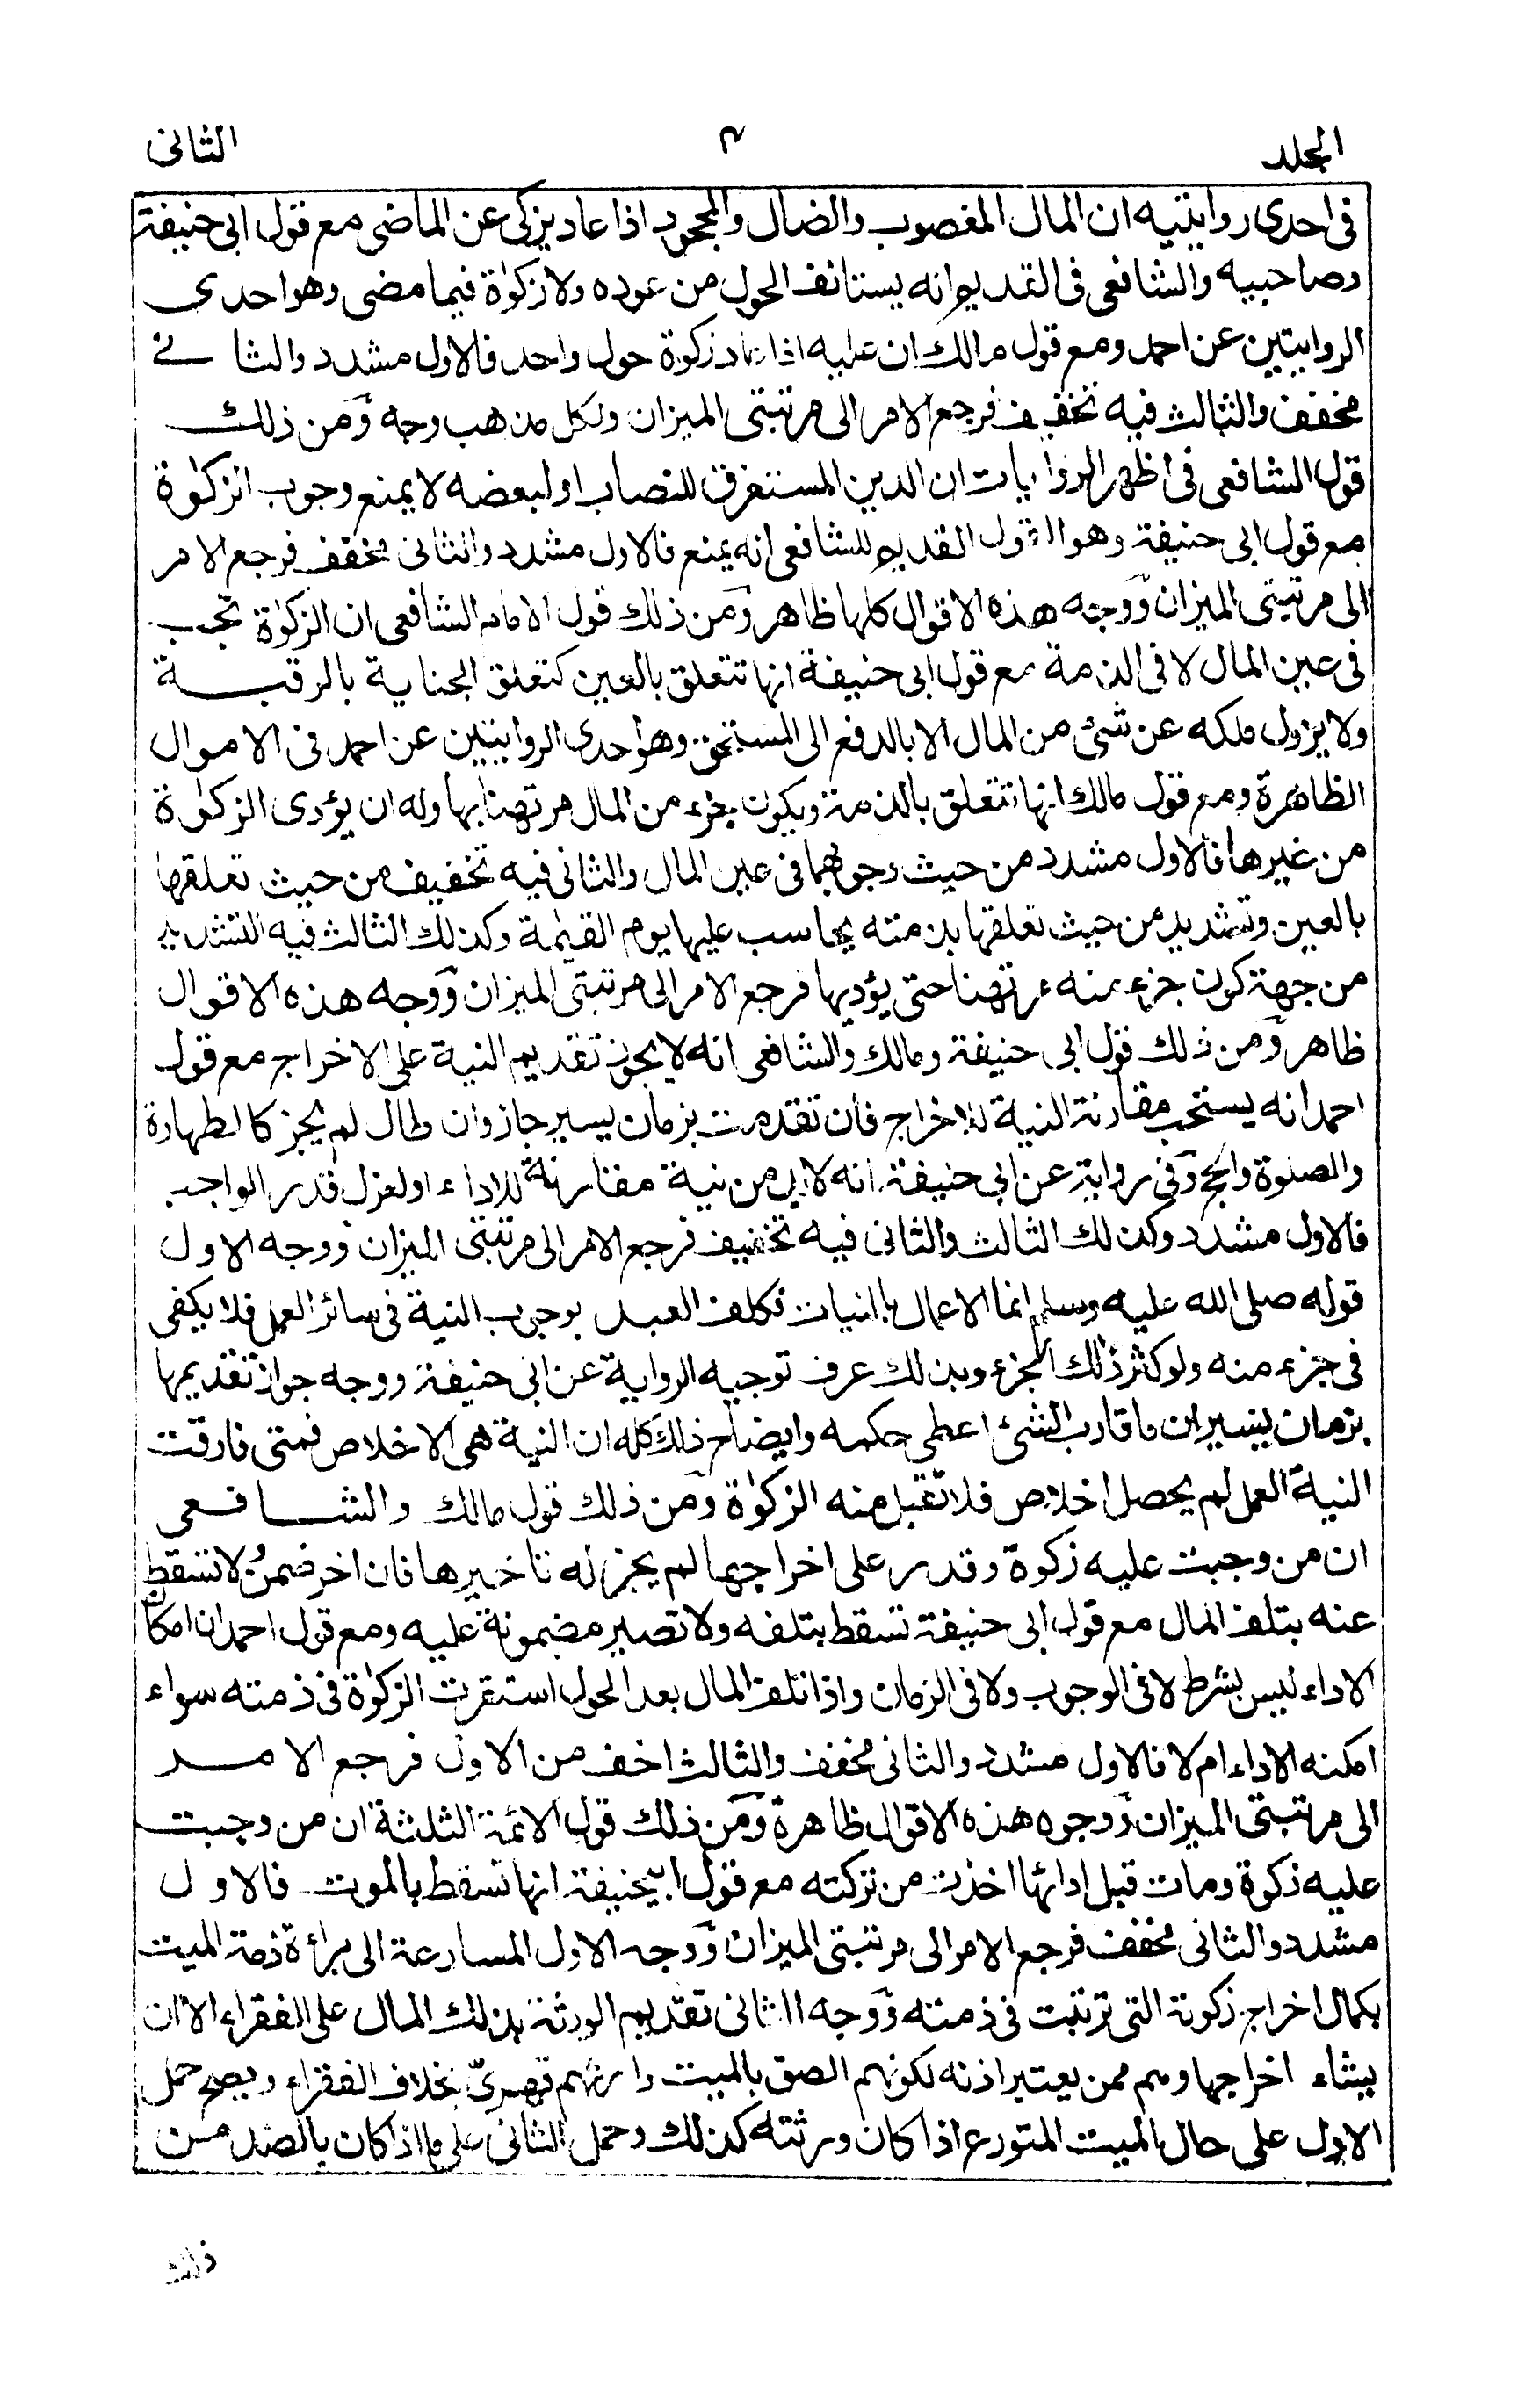 الجلد ٣ الثانى
فى احدى روايتيه ان المال المغصوب والضال والمجحود اذا عاد يزكى عن الماضى مع قول ابى حنيفة
وصاحبيه والشافعى فى القديم انه يستانف الحول من عوده ولا زكوٰة فيما مضى وهو احدى
الروايتين عن احمد ومع قول مالك ان عليه اذا عاد زكوة حول واحد فالاول مشدد والثانى
مخفف والثالث فيه تخفيف فرجع الامر الى مرتبتى الميزان ولكل مذهب وجه ومن ذلك
قول الشافعى فى اظهر الروايات ان الدين المستغرق للنصاب او لبعضه لا يمنع وجوب الزكوٰة
مع قول ابى حنيفة وهو القول القديم للشافعى انه يمنع فالاول مشدد والثانى مخفف فرجع الامر
الى مرتبتى الميزان ووجه هذه الاقوال كلها ظاهر ومن ذلك قول الامام الشافعى ان الزكوٰة تجب
فى عين المال لا فى الذمة مع قول ابى حنيفة انها تتعلق بالعين كتعلق الجناية بالرقبة
ولا يزول ملكه عن شئ من المال الا بالدفع الى المستحق وهو احدى الروايتين عن احمد فى الاموال
الظاهرة ومع قول مالك انها تتعلق بالذمة ويكون جزء من المال مرتهنا بها وله ان يؤدى الزكوٰة
من غيرها فالاول مشدد من حيث وجوبهما فى عين المال والثانى فيه تخفيف من حيث تعلقها
بالعين وتشديد من حيث تعلقها بذمته يحاسب عليها يوم القيٰمة وكذلك الثالث فيه التشديد
من جهة كون جزء منه مرتهنا حتى يؤديها فرجع الامر الى مرتبتى الميزان ووجه هذه الاقوال
ظاهر ومن ذلك قول ابى حنيفة ومالك والشافعى انه لا يجوز تقديم النية على الاخراج مع قول
احمد انه يستحب مقارنة النية للاخراج فان تقدمت بزمان يسير جاز وان طال لم يجز كالطهارة
والصلوة والحج وفى رواية عن ابى حنيفة انه لا بد من نية مقارنة للاداء او لعزل قدر الواجب
فالاول مشدد وكذلك الثالث والثانى فيه تخفيف فرجع الامر الى مرتبتى الميزان ووجه الاول
قوله صلى الله عليه وسلم انما الاعمال بالنيات فكلف العبد بوجوب النية فى سائر العمل فلا يكفى
فى جزء منه ولو كثر ذلك الجزء وبذلك عرف توجيه الرواية عن ابى حنيفة ووجه جواز تقديمها
بزمان يسير ان ما قارب الشئ اعطى حكمه وايضاح ذلك كله ان النية هى الاخلاص فمتى فارقت
النية العمل لم يحصل اخلاص فلا تقبل منه الزكوٰة ومن ذلك قول مالك والشافعى
ان من وجبت عليه زكوة وقدر على اخراجها لم يجز له تاخيرها فان اخر ضمن ولا تسقط
عنه بتلف المال مع قول ابى حنيفة تسقط بتلفه ولا تصير مضمونة عليه ومع قول احمد ان امكان
الاداء ليس بشرط لا فى الوجوب ولا فى الزمان واذا تلف المال بعد الحول استقرت الزكوٰة فى ذمته سواء
امكنه الاداء ام لا فالاول مشدد والثانى مخفف والثالث اخف من الاول فرجع الامر
الى مرتبتى الميزان ووجوه هذه الاقوال ظاهرة ومن ذلك قول الائمة الثلثة ان من وجبت
عليه زكوة ومات قبل ادائها اخذت من تركته مع قول ابيحنيفة انها تسقط بالموت فالاول
مشدد والثانى مخفف فرجع الامر الى مرتبتى الميزان ووجه الاول المسارعة الى براءة ذمة الميت
بكمال اخراج زكوته التى ترتبت فى ذمته ووجه الثانى تقديم الورثة بذلك المال على الفقراء الا ان
يشاء اخراجها وهم ممن يعتبر اذنه لكونهم الصق بالميت وارثهم قهرىّ بخلاف الفقراء ويصح حمل
الاول على حال الميت المتورع اذا كان ورثته كذلك وحمل الثانى على ما اذا كان بالضد من
ذلك